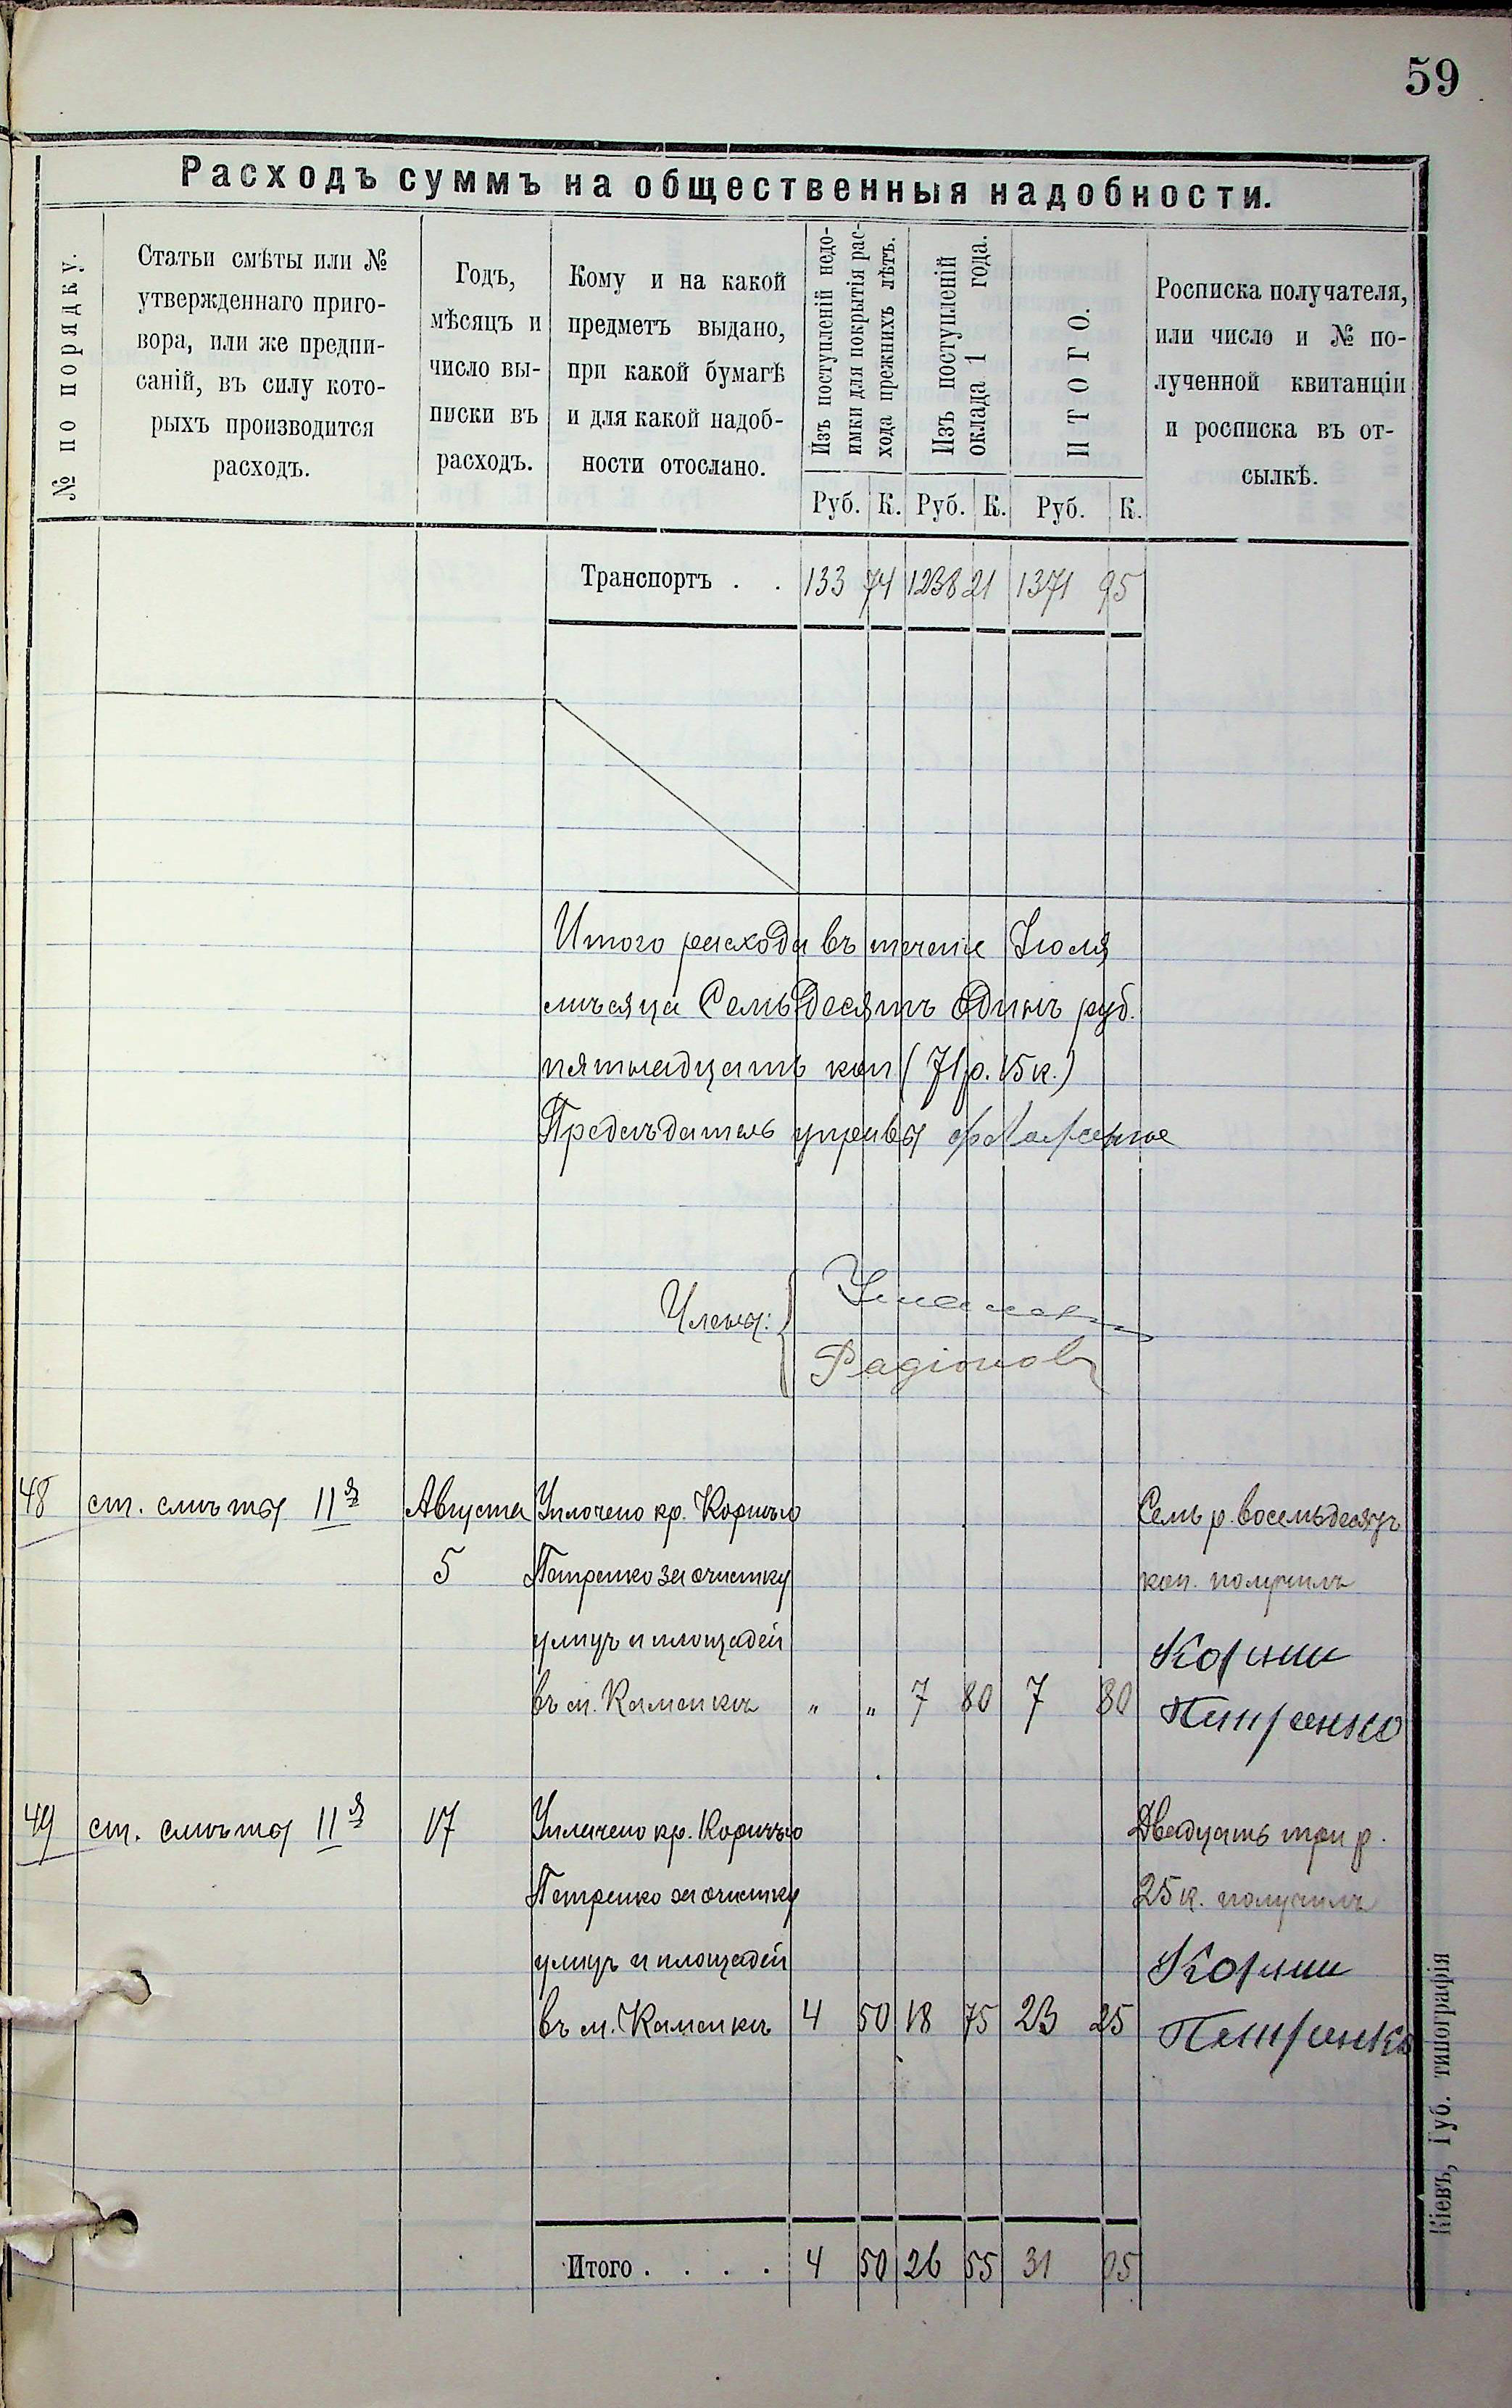 59
Расходъ суммъ на общественныя надобности.
№ по порядку.
Статьи смѣты или №
утвержденнаго приго-
вора, или же предпи-
саній, въ силу кото-
рыхъ производится
расходъ.
Годъ,
мѣсяцъ и
число вы-
писки въ
расходъ.
Кому и на какой
предметъ выдано,
при какой бумагѣ
и для какой надоб-
ности отослано.
Изъ поступленій недо-
имки для покрытія рас-
хода прежнихъ лѣтъ.
Изъ поступленій
оклада 1 года.
ИТОГО.
Росписка получателя,
или число и № по-
лученной квитанціи
и росписка въ от-
сылкѣ.
Руб. К. Руб. К. Руб. К.
Транспортъ . . 133 74 1238 21 1371 95
Итого расхода въ теченіе Іюля
мѣсяца Семьдесятъ одинъ руб.
пятнадцать коп (71 р. 15 к.)
Предсѣдатель управы
Члены:
Радіоновъ
48 ст. смѣты 11я Августа Уплочено кр. Корнѣю Семь р. восемьдесятъ
5 Петренко за очистку коп. получилъ
улицъ и площадей Корнии
въ м. Каменкѣ " " 7 80 7 80 Петренко
49 ст. смѣты 11я 17 Уплачено кр. Корнѣю Двадцать три р.
Петренко за очистку 25 к. получилъ
улицъ и площадей Корнии
въ м. Каменкѣ 4 50 18 75 23 25 Петренко
Итого . . . . 4 50 26 55 31 05
Кіевъ, Губ. типографія